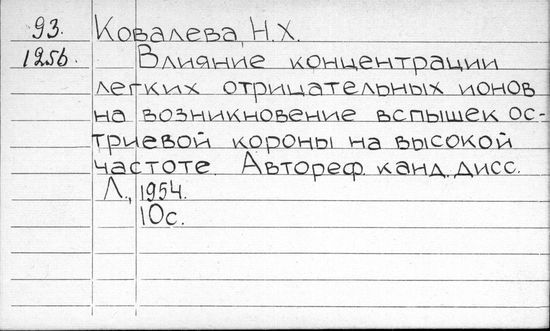 93. Ковалева, Н.Х.
125б. Влияние концентрации
легких отрицательных ионов
на возникновение вспышек ос-
триевой короны на высокой
частоте. Автореф. канд. дисс.
Л., 1954.
10с.